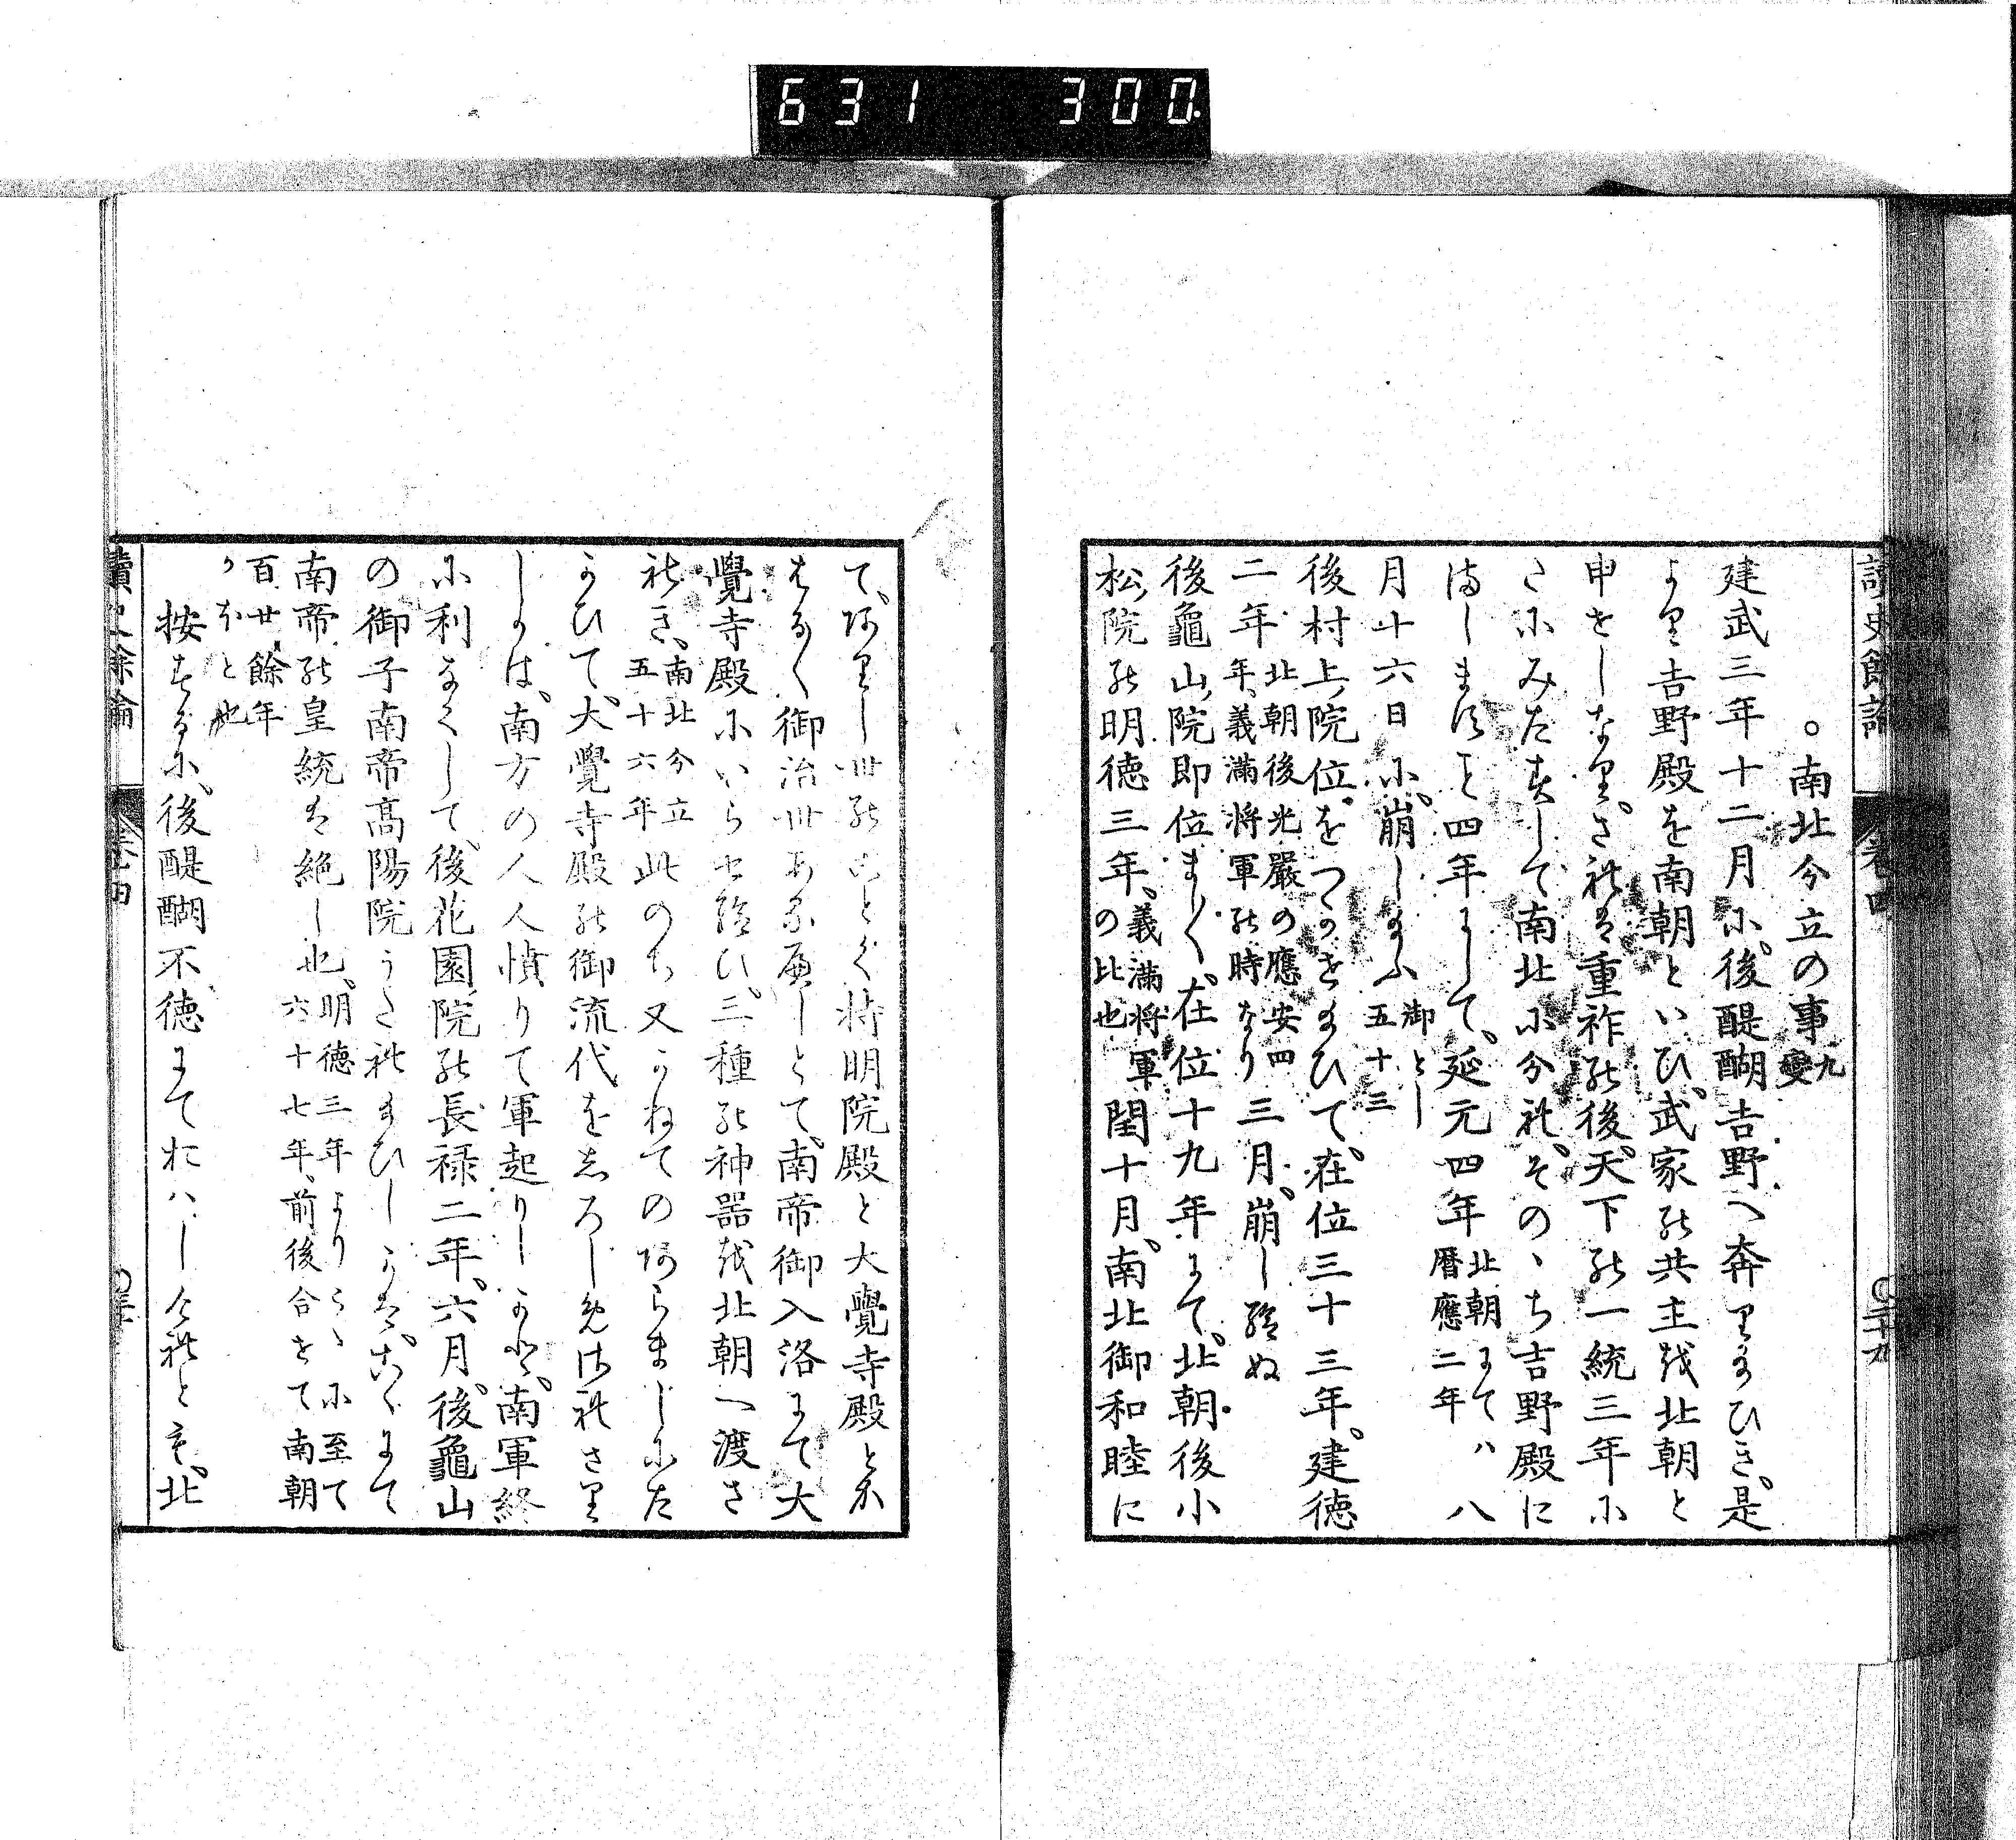 631 300
讀史餘論 卷四 ○二十九
○南北分立の事 九變
建武三年十二月に、後醍醐吉野へ奔り給ひき、是
より吉野殿を南朝といひ、武家の共主を北朝と
申せしなり、されは重祚の後、天下の一統三年に
たにみたすして南北に分れ、そのゝち吉野殿に
ましますこと四年にして、延元四年 北朝にては暦應二年 八
月十六日に、崩し給ふ 御とし五十三
後村上院位をつかせ給ひて、在位三十三年、建徳
二年 北朝後光嚴の應安四年、義滿將軍の時なり 三月、崩し給ぬ
後龜山院即位まし〳〵、在位十九年にて、北朝後小
松院の明徳三年、義滿將軍の比也 閏十月、南北御和睦に
て、ありし世のことく持明院殿と大覺寺殿とかは
はる〳〵御治世あるへしとて、南帝御入洛にて大
覺寺殿にいらせ給ひ、三種の神器を北朝へ渡さ
れき、南北分立五十六年 此のち又かねてのあらましにた
かひて、大覺寺殿の御流代をしろしめされさり
しかは、南方の人人憤りて軍起りしかと、南軍終
に利なくして、後花園院の長禄二年、六月、後龜山
の御子南帝髙陽院うたれ給ひしかは、こゝにて
南帝の皇統は絶し也、明徳三年よりこゝに至て六十七年、前後合せて南朝
百廿餘年
かほと也
按するに、後醍醐不徳にておはしけれとも、北
讀史餘論 卷四 ○三十